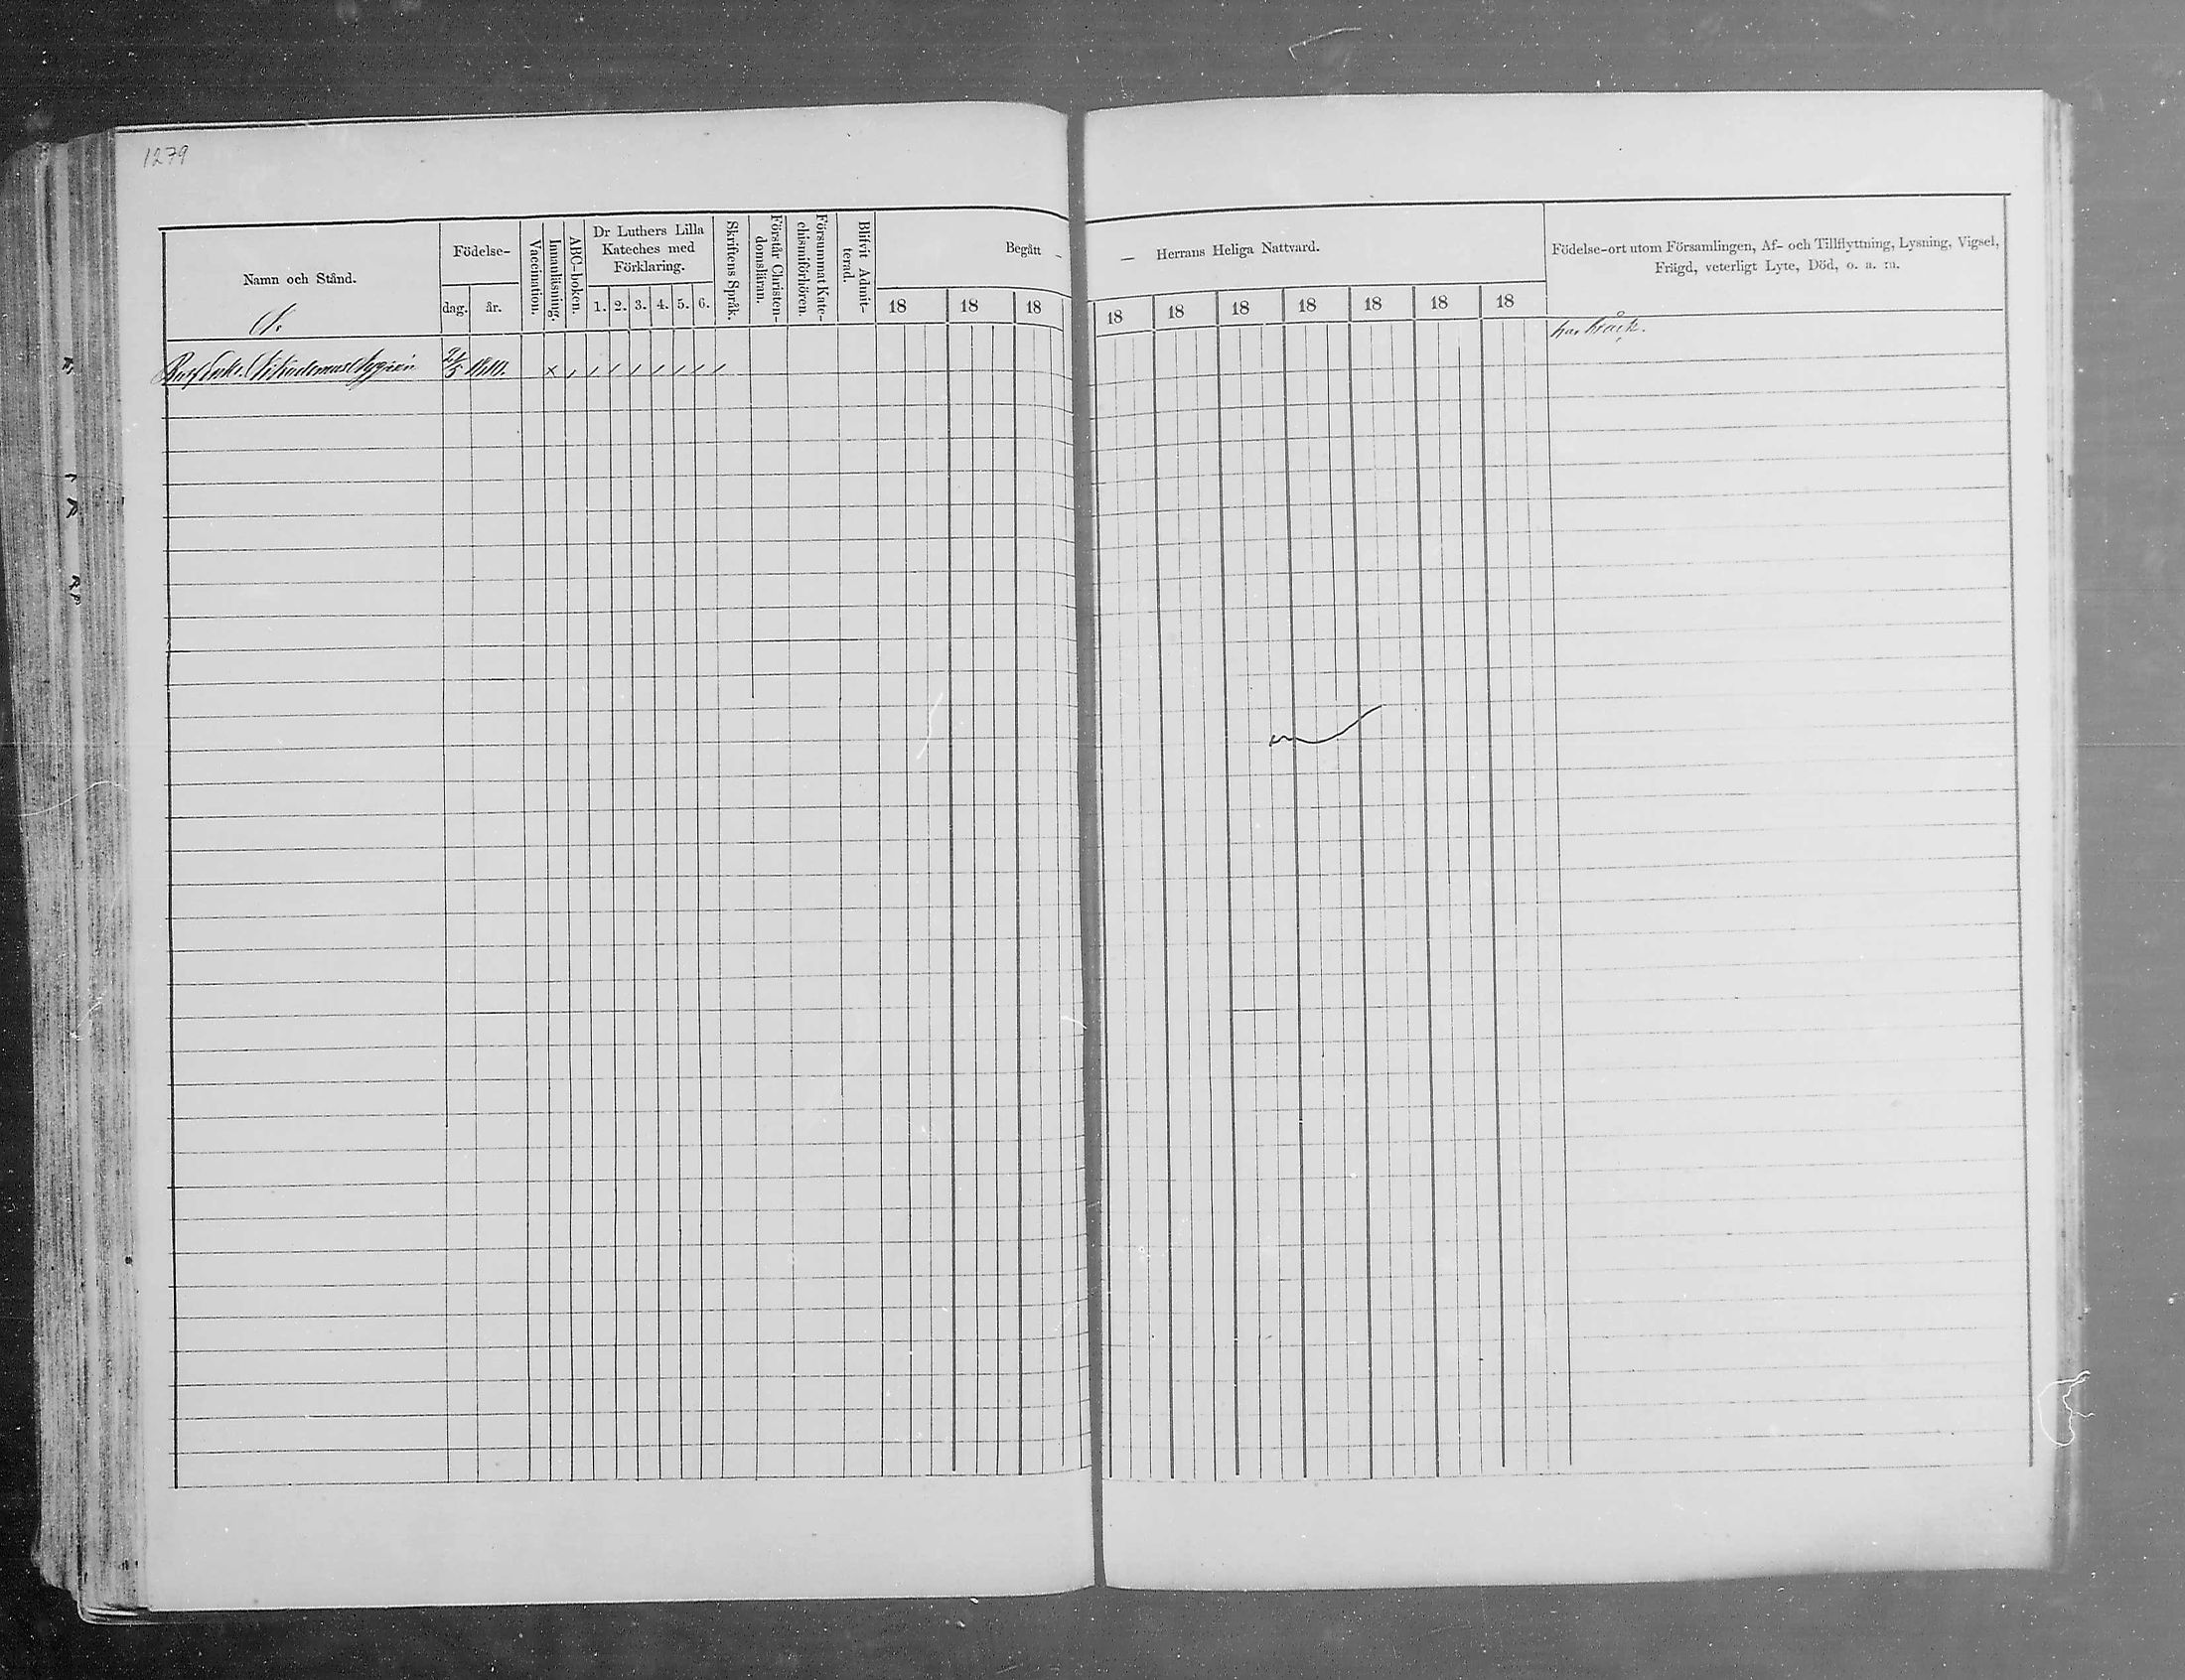 1279
Namn och Stånd.
Födelse-
dag.
år.
Vaccination.
Innanläsning.
ABC-boken.
Dr Luthers Lilla
Kateches med
Förklaring.
1. 2. 3. 4. 5. 6.
Skriftens Språk.
Förstår Christen-
domsläran.
Försummat Kate-
chismiförhören.
Blifvit Admit-
terad.
Begått —
18 18 18
— Herrans Heliga Nattvard.
18 18 18 18 18 18 18
Födelse-ort utom Församlingen, Af- och Tillflyttning, Lysning, Vigsel,
Frägd, veterligt Lyte, Död, o. s. m.
har bråck.
21/5 1810.